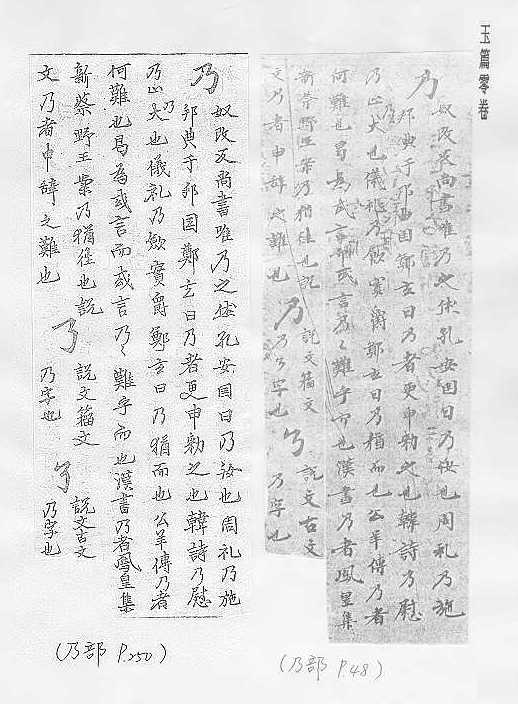 玉篇零卷
乃
奴改反尚書唯乃之休孔安国曰乃汝也周礼乃施
邦典于邦国鄭玄曰乃者更申勅之也韓詩乃慰
乃止大也儀礼乃飲實爵鄭玄曰乃猶而也公羊傳乃者
何難也曷為或言而或言乃〻難乎而也漢書乃者鳳皇集
新蔡野王案乃猶往也説
文乃者申辞之難也
説文籀文
乃字也
説文古文
乃字也
(乃部 P.48)
乃
奴改反尚書唯乃之休孔安国曰乃汝也周礼乃施
邦典于邦国鄭玄曰乃者更申勅之也韓詩乃慰
乃止乃大也儀礼乃飲實爵鄭玄曰乃猶而也公羊傳乃者
何難也曷為或言而或言乃〻難乎而也漢書乃者鳳皇集
新蔡野王案乃猶往也説
文乃者申辞之難也
説文籀文
乃字也
説文古文
乃字也
(乃部 P.250)